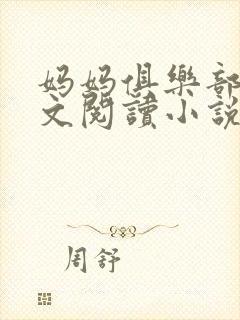 妈妈俱樂部
文閱讀小說
周舒